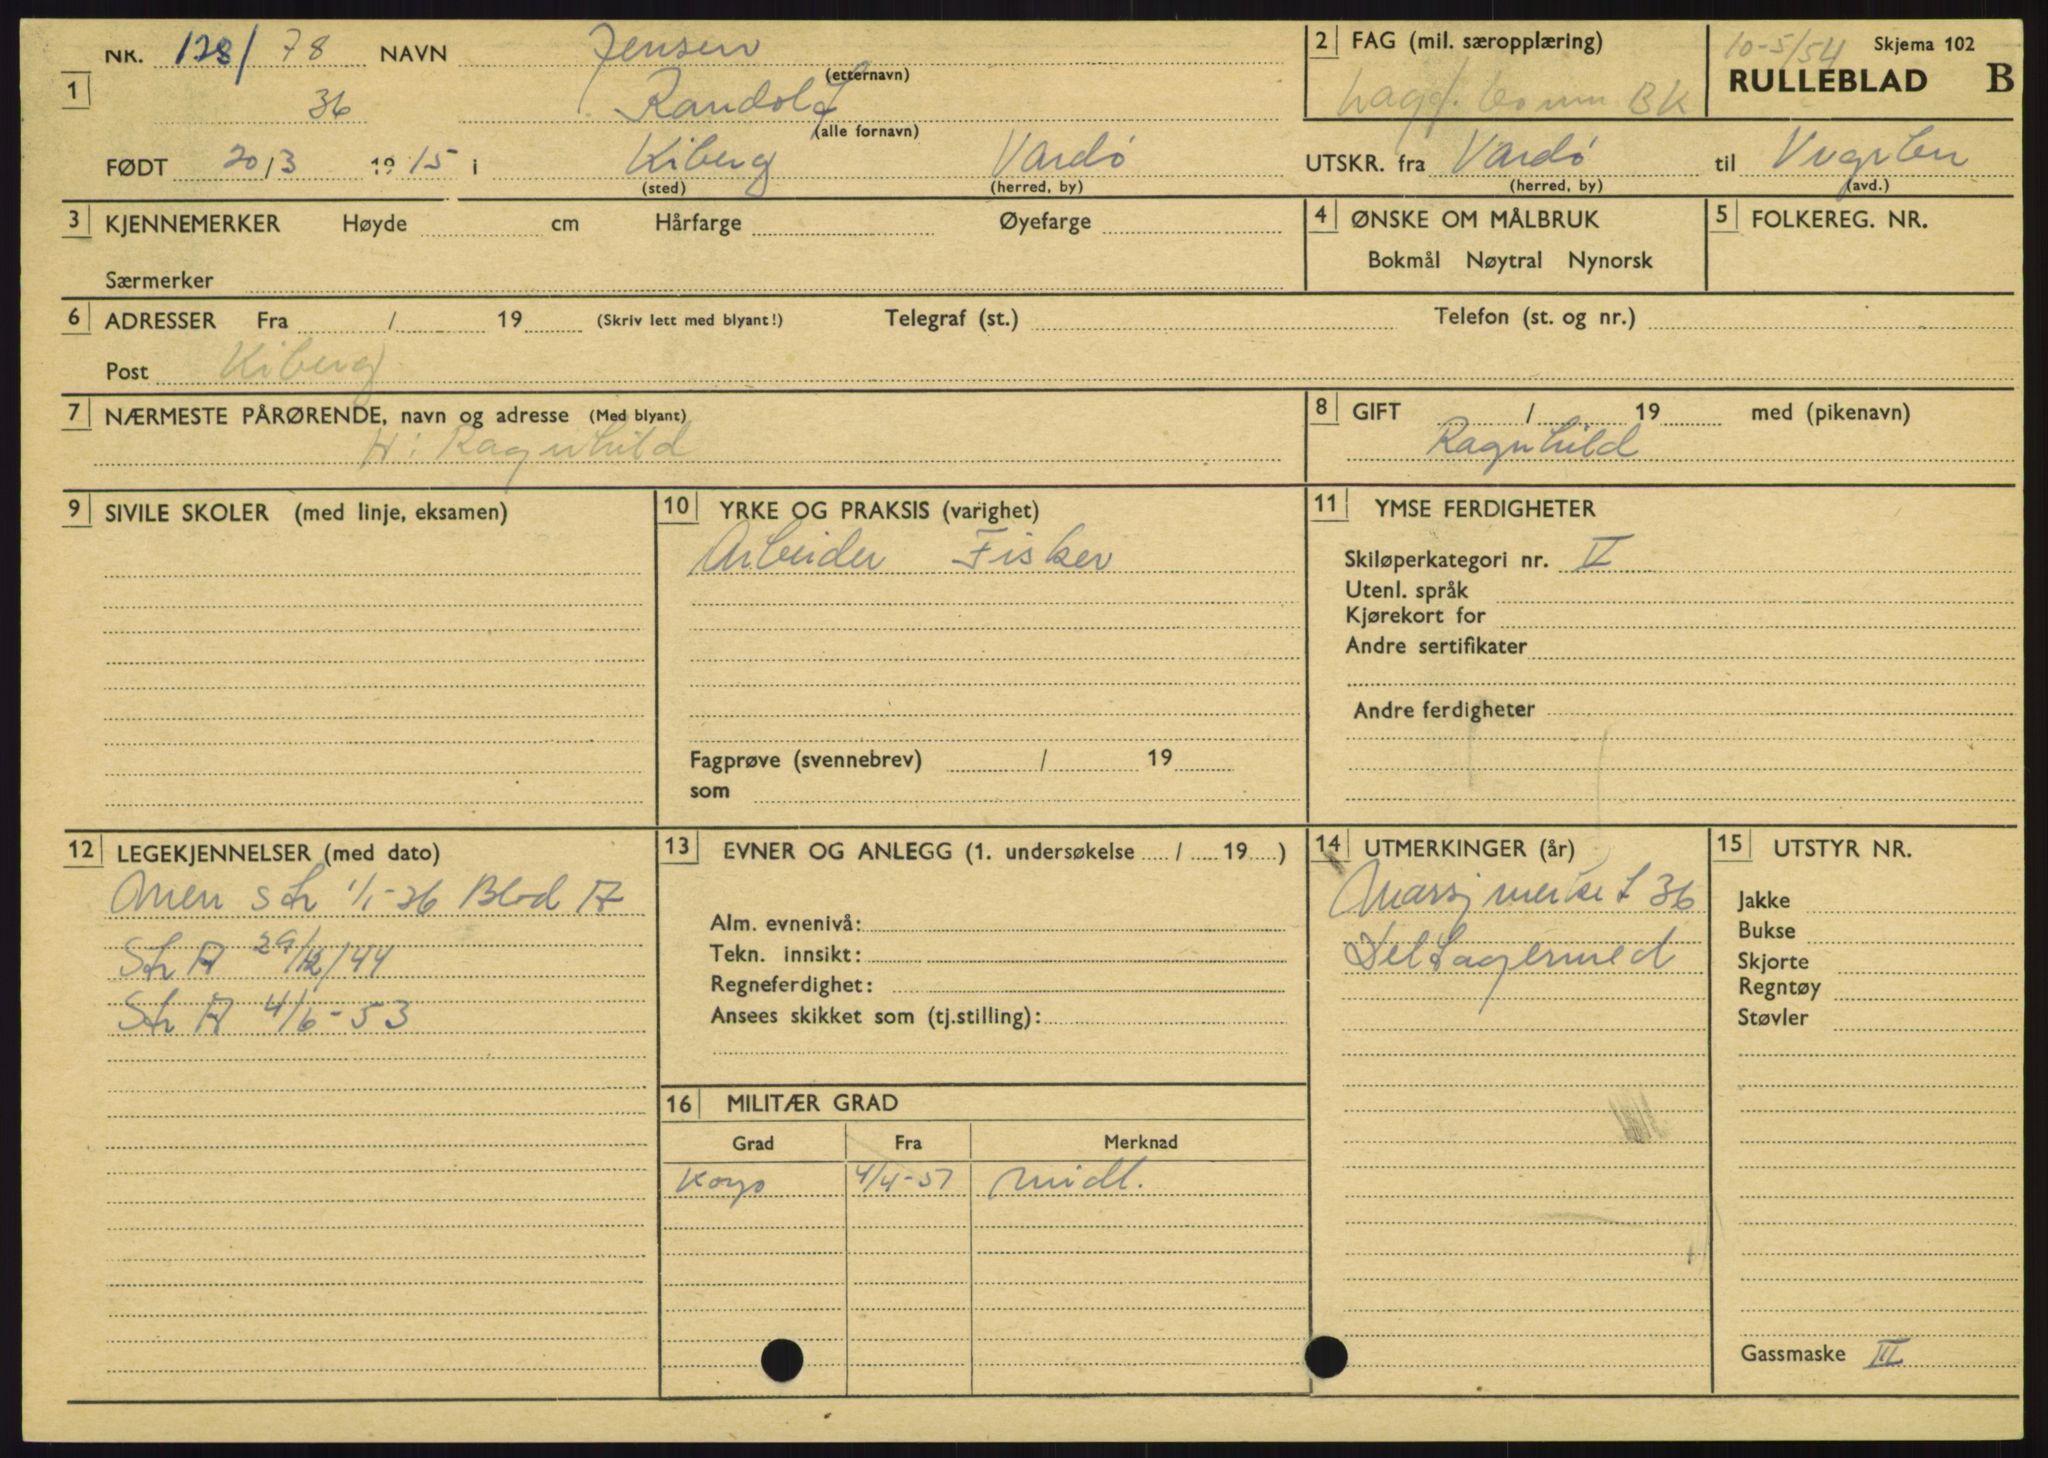 NR. 128/78 NAVN Jensen
(etternavn)
2 FAG (mil. særopplæring)
10-5/54 Skjema 102
1
36 Randolf
(alle fornavn)
Lagf. BK
RULLEBLAD B
FØDT 20/3 1915 i Kiberg Vardø
(sted) (herred, by)
UTSKR. fra Vardø til
(herred, by) (avd.)
3 KJENNEMERKER Høyde cm Hårfarge Øyefarge
Særmerker
4 ØNSKE OM MÅLBRUK
Bokmål Nøytral Nynorsk
5 FOLKEREG. NR.
6 ADRESSER Fra / 19 (Skriv lett med blyant!) Telegraf (st.) Telefon (st. og nr.)
Post Kiberg
7 NÆRMESTE PÅRØRENDE, navn og adresse (Med blyant)
H: Ragnhild
8 GIFT / 19 med (pikenavn)
Ragnhild
9 SIVILE SKOLER (med linje, eksamen)
10 YRKE OG PRAKSIS (varighet)
Arbeider Fisker
Fagprøve (svennebrev) / 19
som
11 YMSE FERDIGHETER
Skiløperkategori nr. V
Utenl. språk
Kjørekort for
Andre sertifikater
Andre ferdigheter
12 LEGEKJENNELSER (med dato)
St 1/1-36 Blod A
St A 29/12/44
St A 4/6-53
13 EVNER OG ANLEGG (1. undersøkelse / 19 )
Alm. evnenivå:
Tekn. innsikt:
Regneferdighet:
Ansees skikket som (tj.stilling):
14 UTMERKINGER (år)
Marsjmerket 36
Deltagermed
15 UTSTYR NR.
Jakke
Bukse
Skjorte
Regntøy
Støvler
Gassmaske III
16 MILITÆR GRAD
Grad Fra Merknad
Korp 4/4-51 midl.